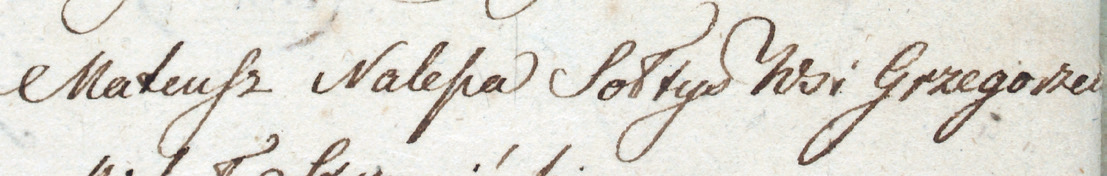 Mateusz Nalepa Sołtys Wsi Grzegorzew